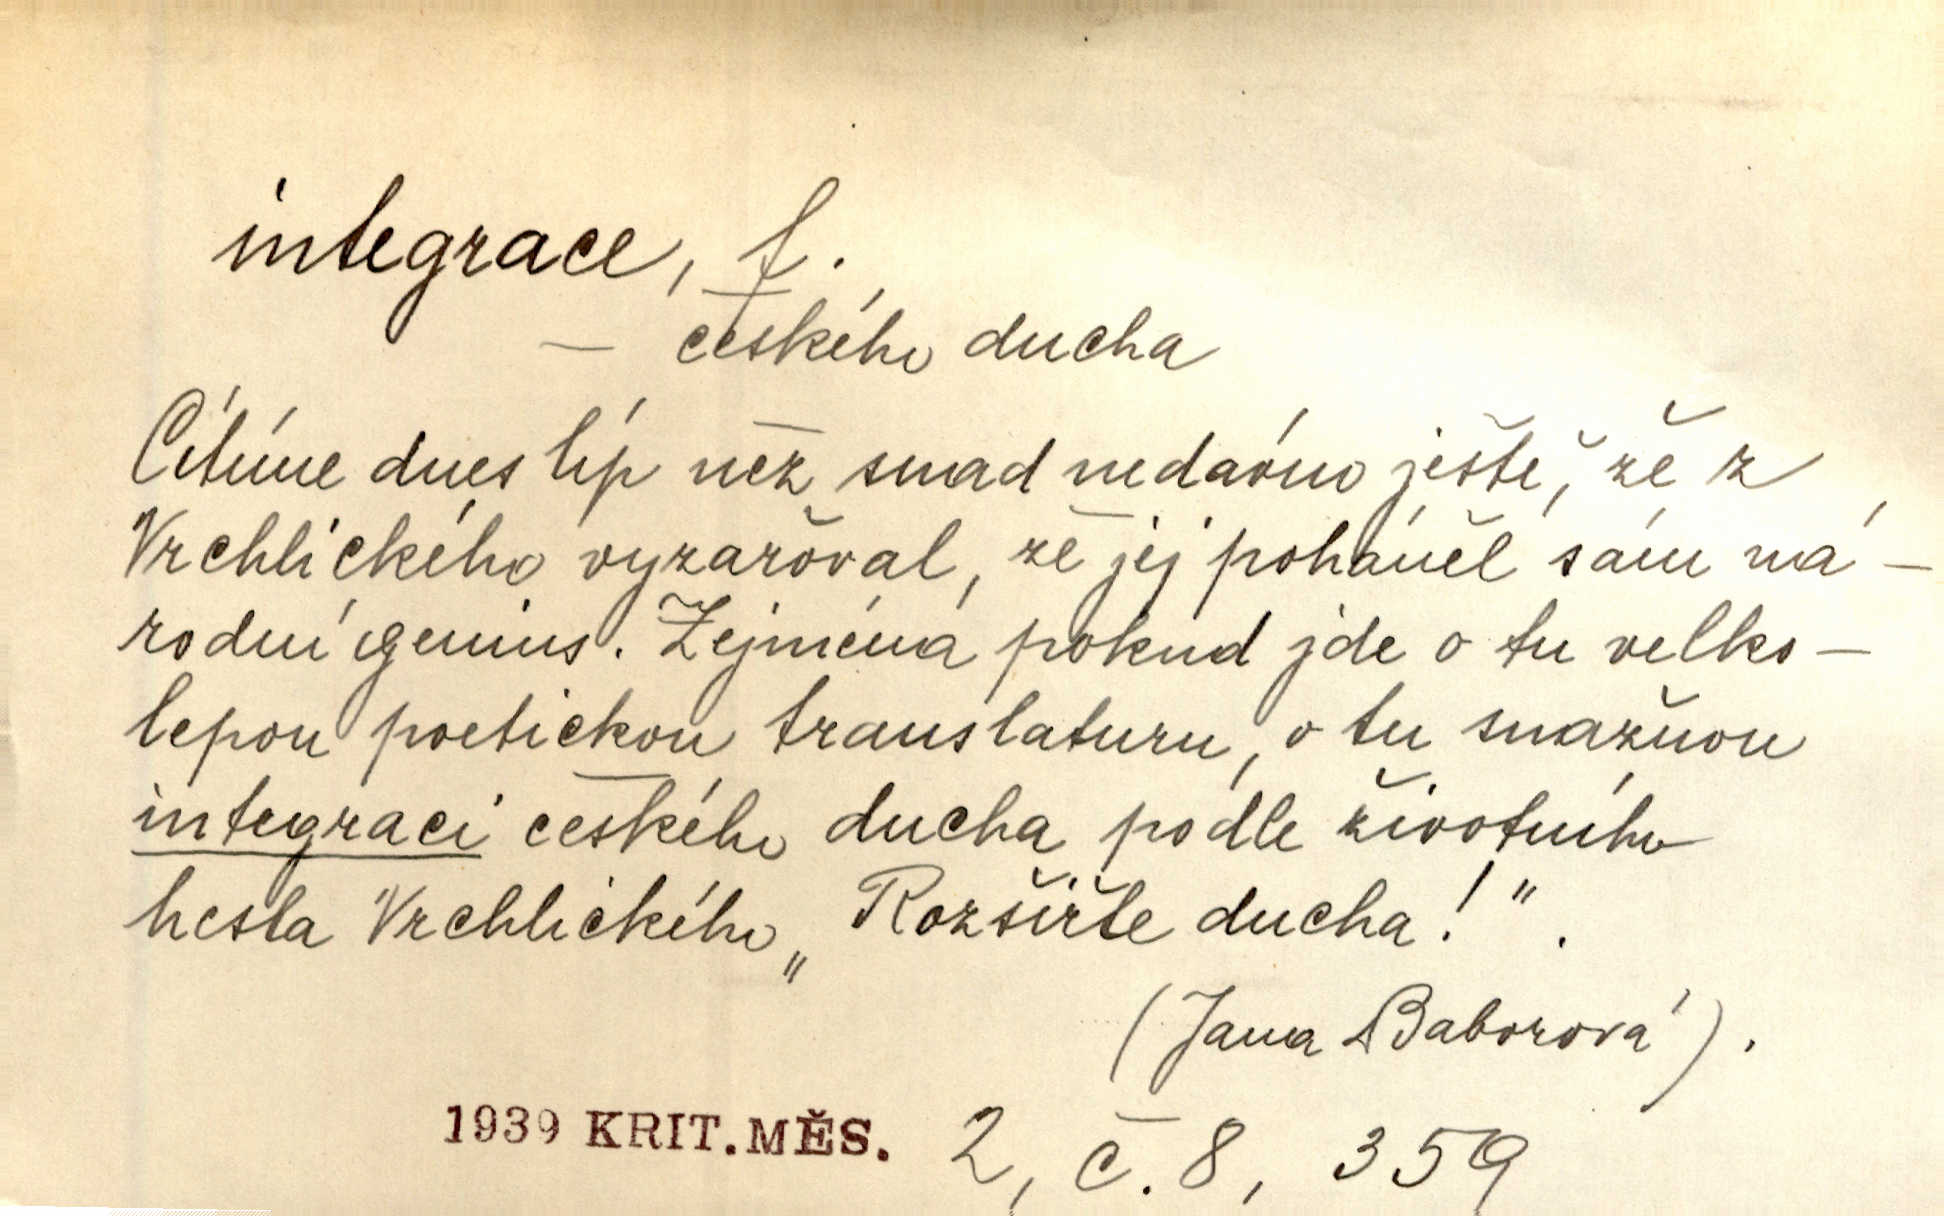 integrace, f.
— českého ducha
Cítíme dnes líp než snad nedávno ještě, že z
Vrchlického vyzařoval, že jej poháněl sám ná-
rodní genius. Zejména pokud jde o tu velko-
lepou poetickou translaturu, o tu snaživou
integraci českého ducha podle životního
hesla Vrchlického „Rozšiřte ducha!".
(Jana Baborová).
1939 KRIT.MĚS. 2, č. 8, 359